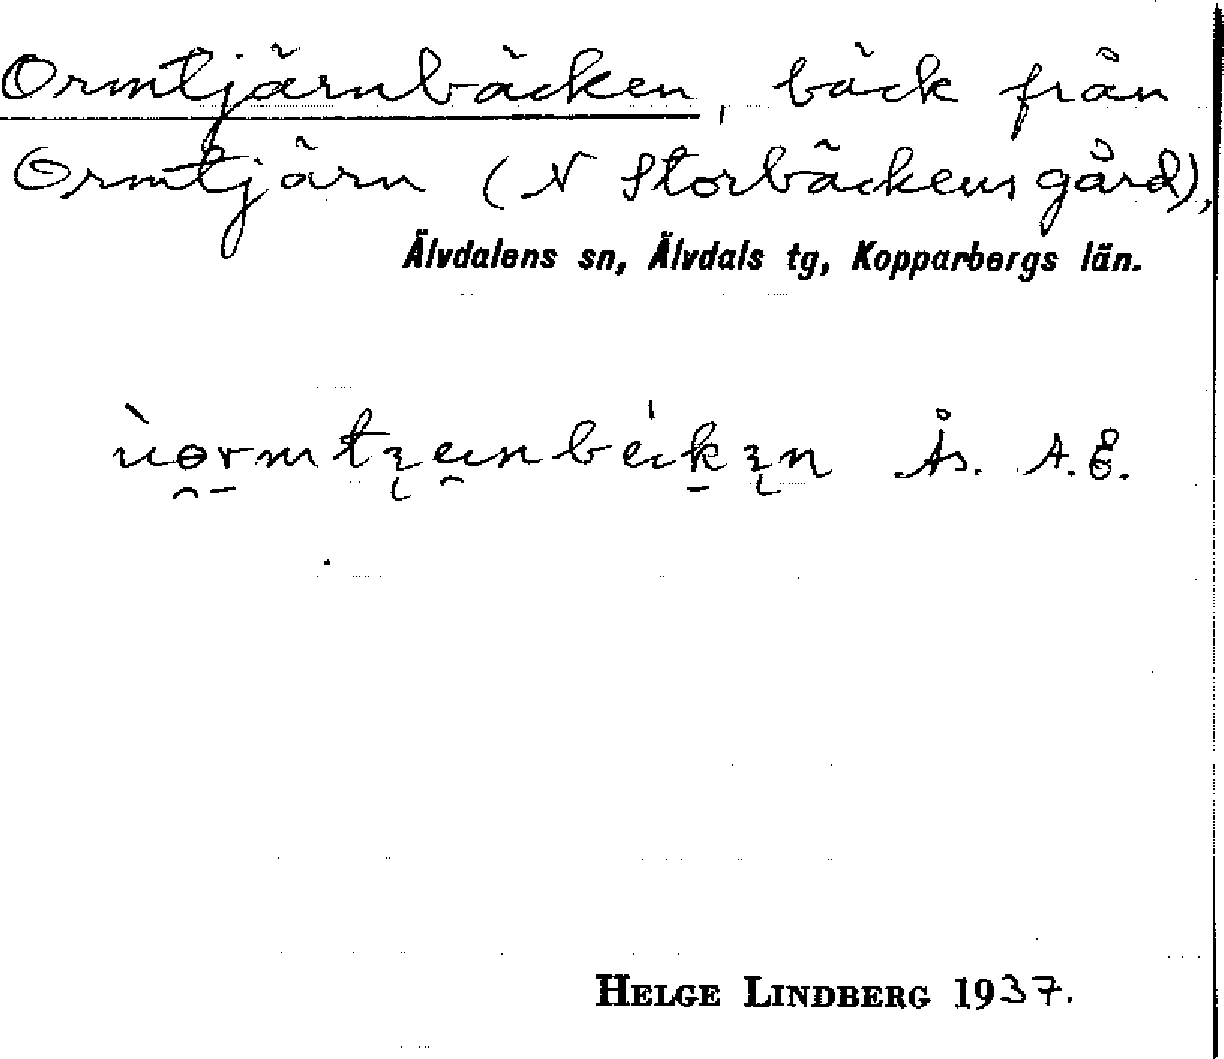 Ormtjärnbäcken, bäck från
Ormtjärn (N Storbäckens gård),
Älvdalens sn, Älvdals tg, Kopparbergs län.
Ås. A.E.
HELGE LINDBERG 1937.